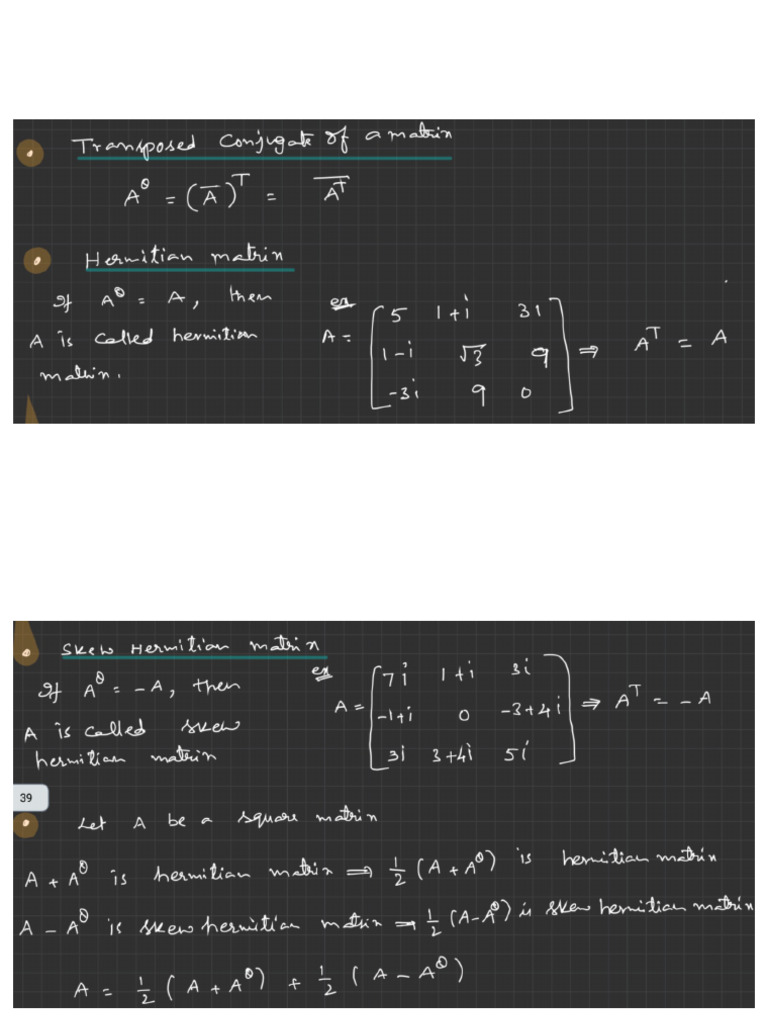 Transposed Conjugate of a matrix
A^θ = (A̅)^T = \overline{A^T}
Hermitian matrix
If A^θ = A, then
A is called hermitian
matrix.
ex
A = [5 1+i 3i
1-i √3 9
-3i 9 0] ⇒ A^T = A
Skew Hermitian matrix
If A^θ = -A, then
A is called skew
hermitian matrix
ex
A = [7i 1+i 3i
-1+i 0 -3+4i
3i 3+4i 5i] ⇒ A^T = -A
39
Let A be a square matrix
A + A^θ is hermitian matrix ⇒ 1/2 (A + A^θ) is hermitian matrix
A - A^θ is skew hermitian matrix → 1/2 (A - A^θ) is skew hermitian matrix
A = 1/2 (A + A^θ) + 1/2 (A - A^θ)